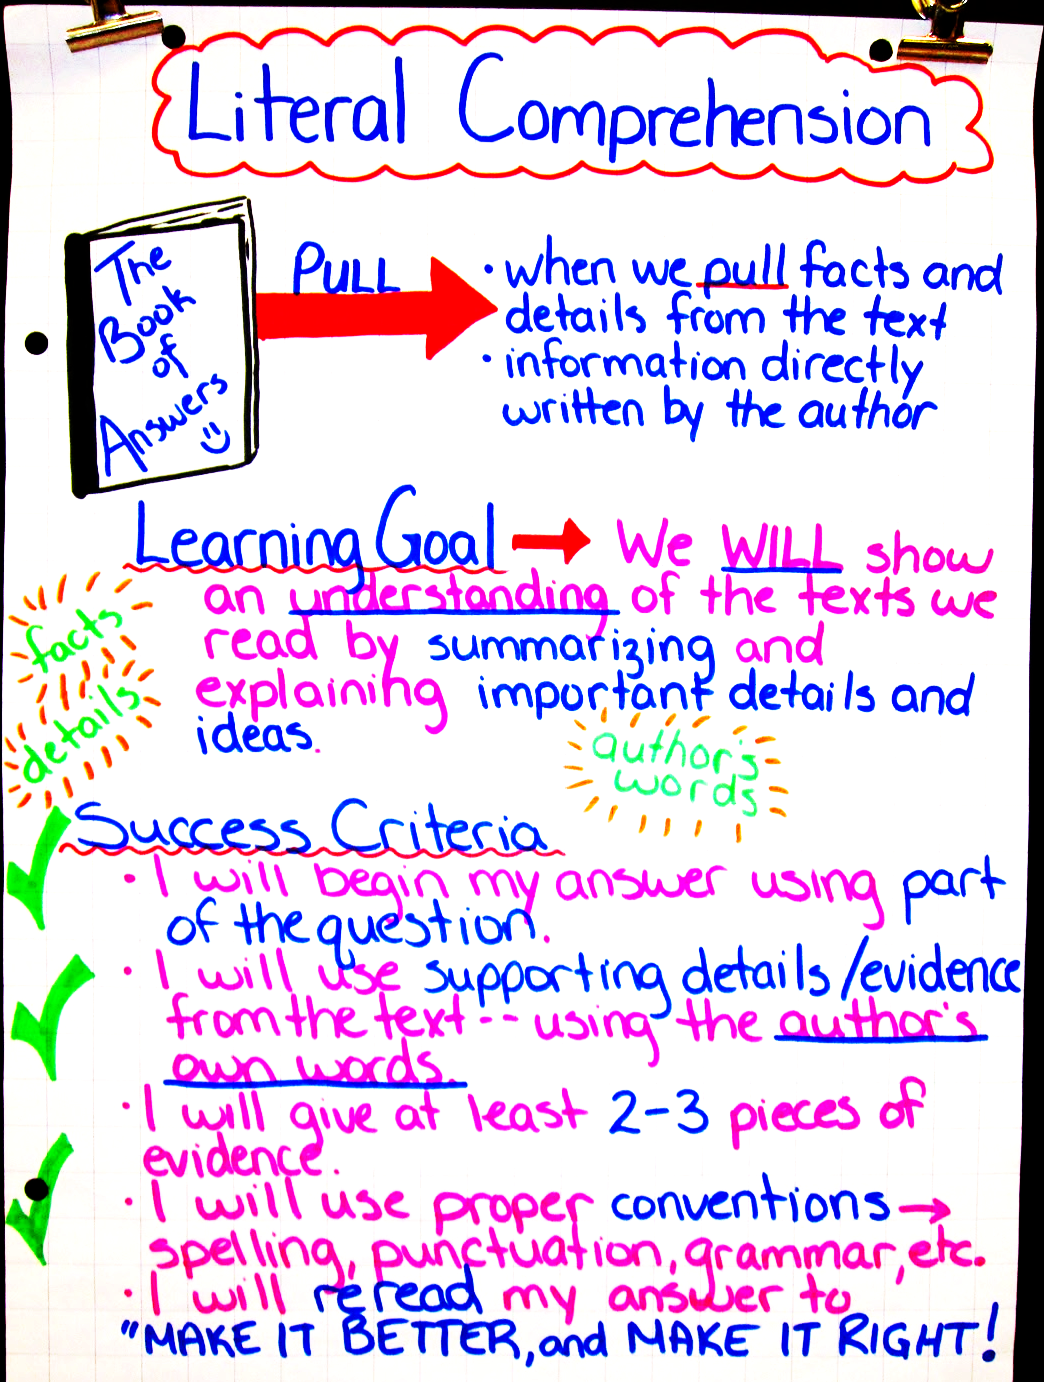 Literal Comprehension
The
Book
of
Answers
PULL
• when we pull facts and
details from the text
• information directly
written by the author
Learning Goal → We WILL show
an understanding of the texts we
read by summarizing and
explaining important details and
ideas.
facts
details
author's
words
Success Criteria
• I will begin my answer using part
of the question.
• I will use supporting details/evidence
from the text -- using the author's
own words.
• I will give at least 2-3 pieces of
evidence.
• I will use proper conventions →
spelling, punctuation, grammar, etc.
• I will reread my answer to
"MAKE IT BETTER, and MAKE IT RIGHT!